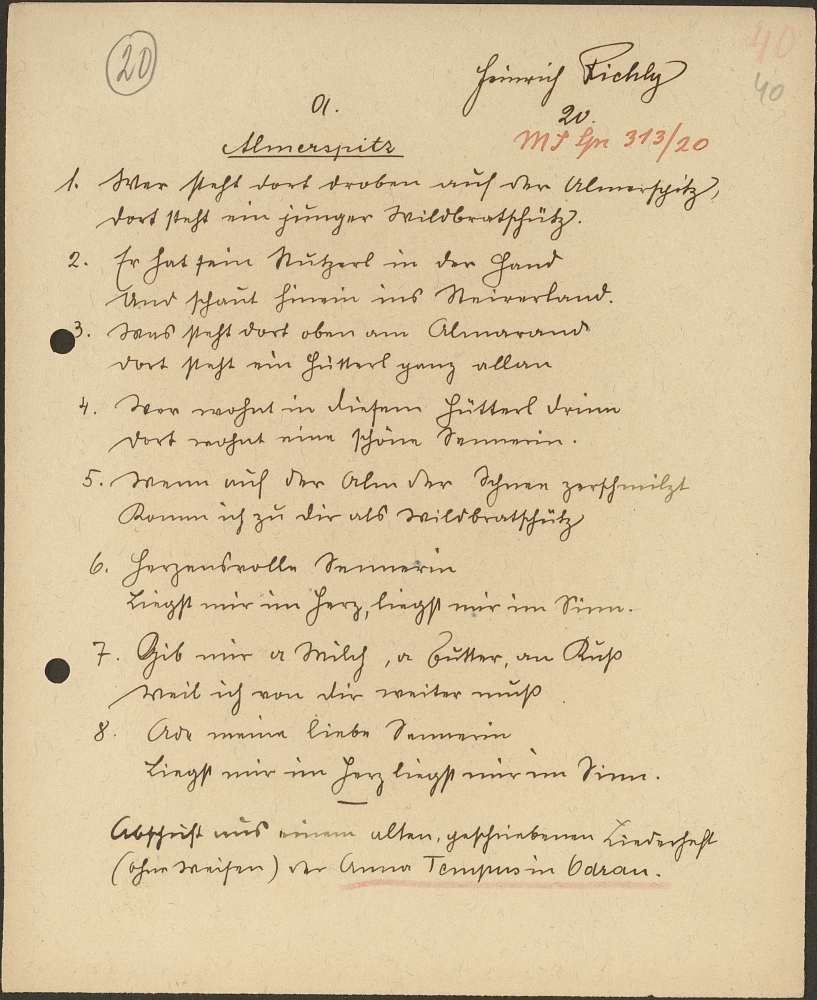 20
40
Heinrich Pichly
40
a.
20.
Almerspitz
313/20
1. Wer steht dort droben auf der Almerspitz,
dort steht ein junger Wildbratschütz.
2. Er hat sein Stutzerl in der Hand
Und schaut hinein ins Steirerland.
3. Was steht dort oben am Almarand
dort steht ein Hütterl ganz allan
4. Wer wohnt in diesem Hütterl drinn
dort wohnt eine schöne Sennerin.
5. Wenn auf der Alm der Schnee zerschmilzt
Komm ich zu dir als Wildbratschütz
6. Herzensvolle Sennerin
Liegst mir im Herz, liegst mir im Sinn.
7. Gib mir a Milch, a Butter, an Kuß
Weil ich von dir weiter muß
8. Ade meine liebe Sennerin
Liegst mir im Herz liegst mir im Sinn.
Abschrift aus einem alten, geschriebenen Liederheft
(ohne Weisen) der Anna Tempus in Odrau.